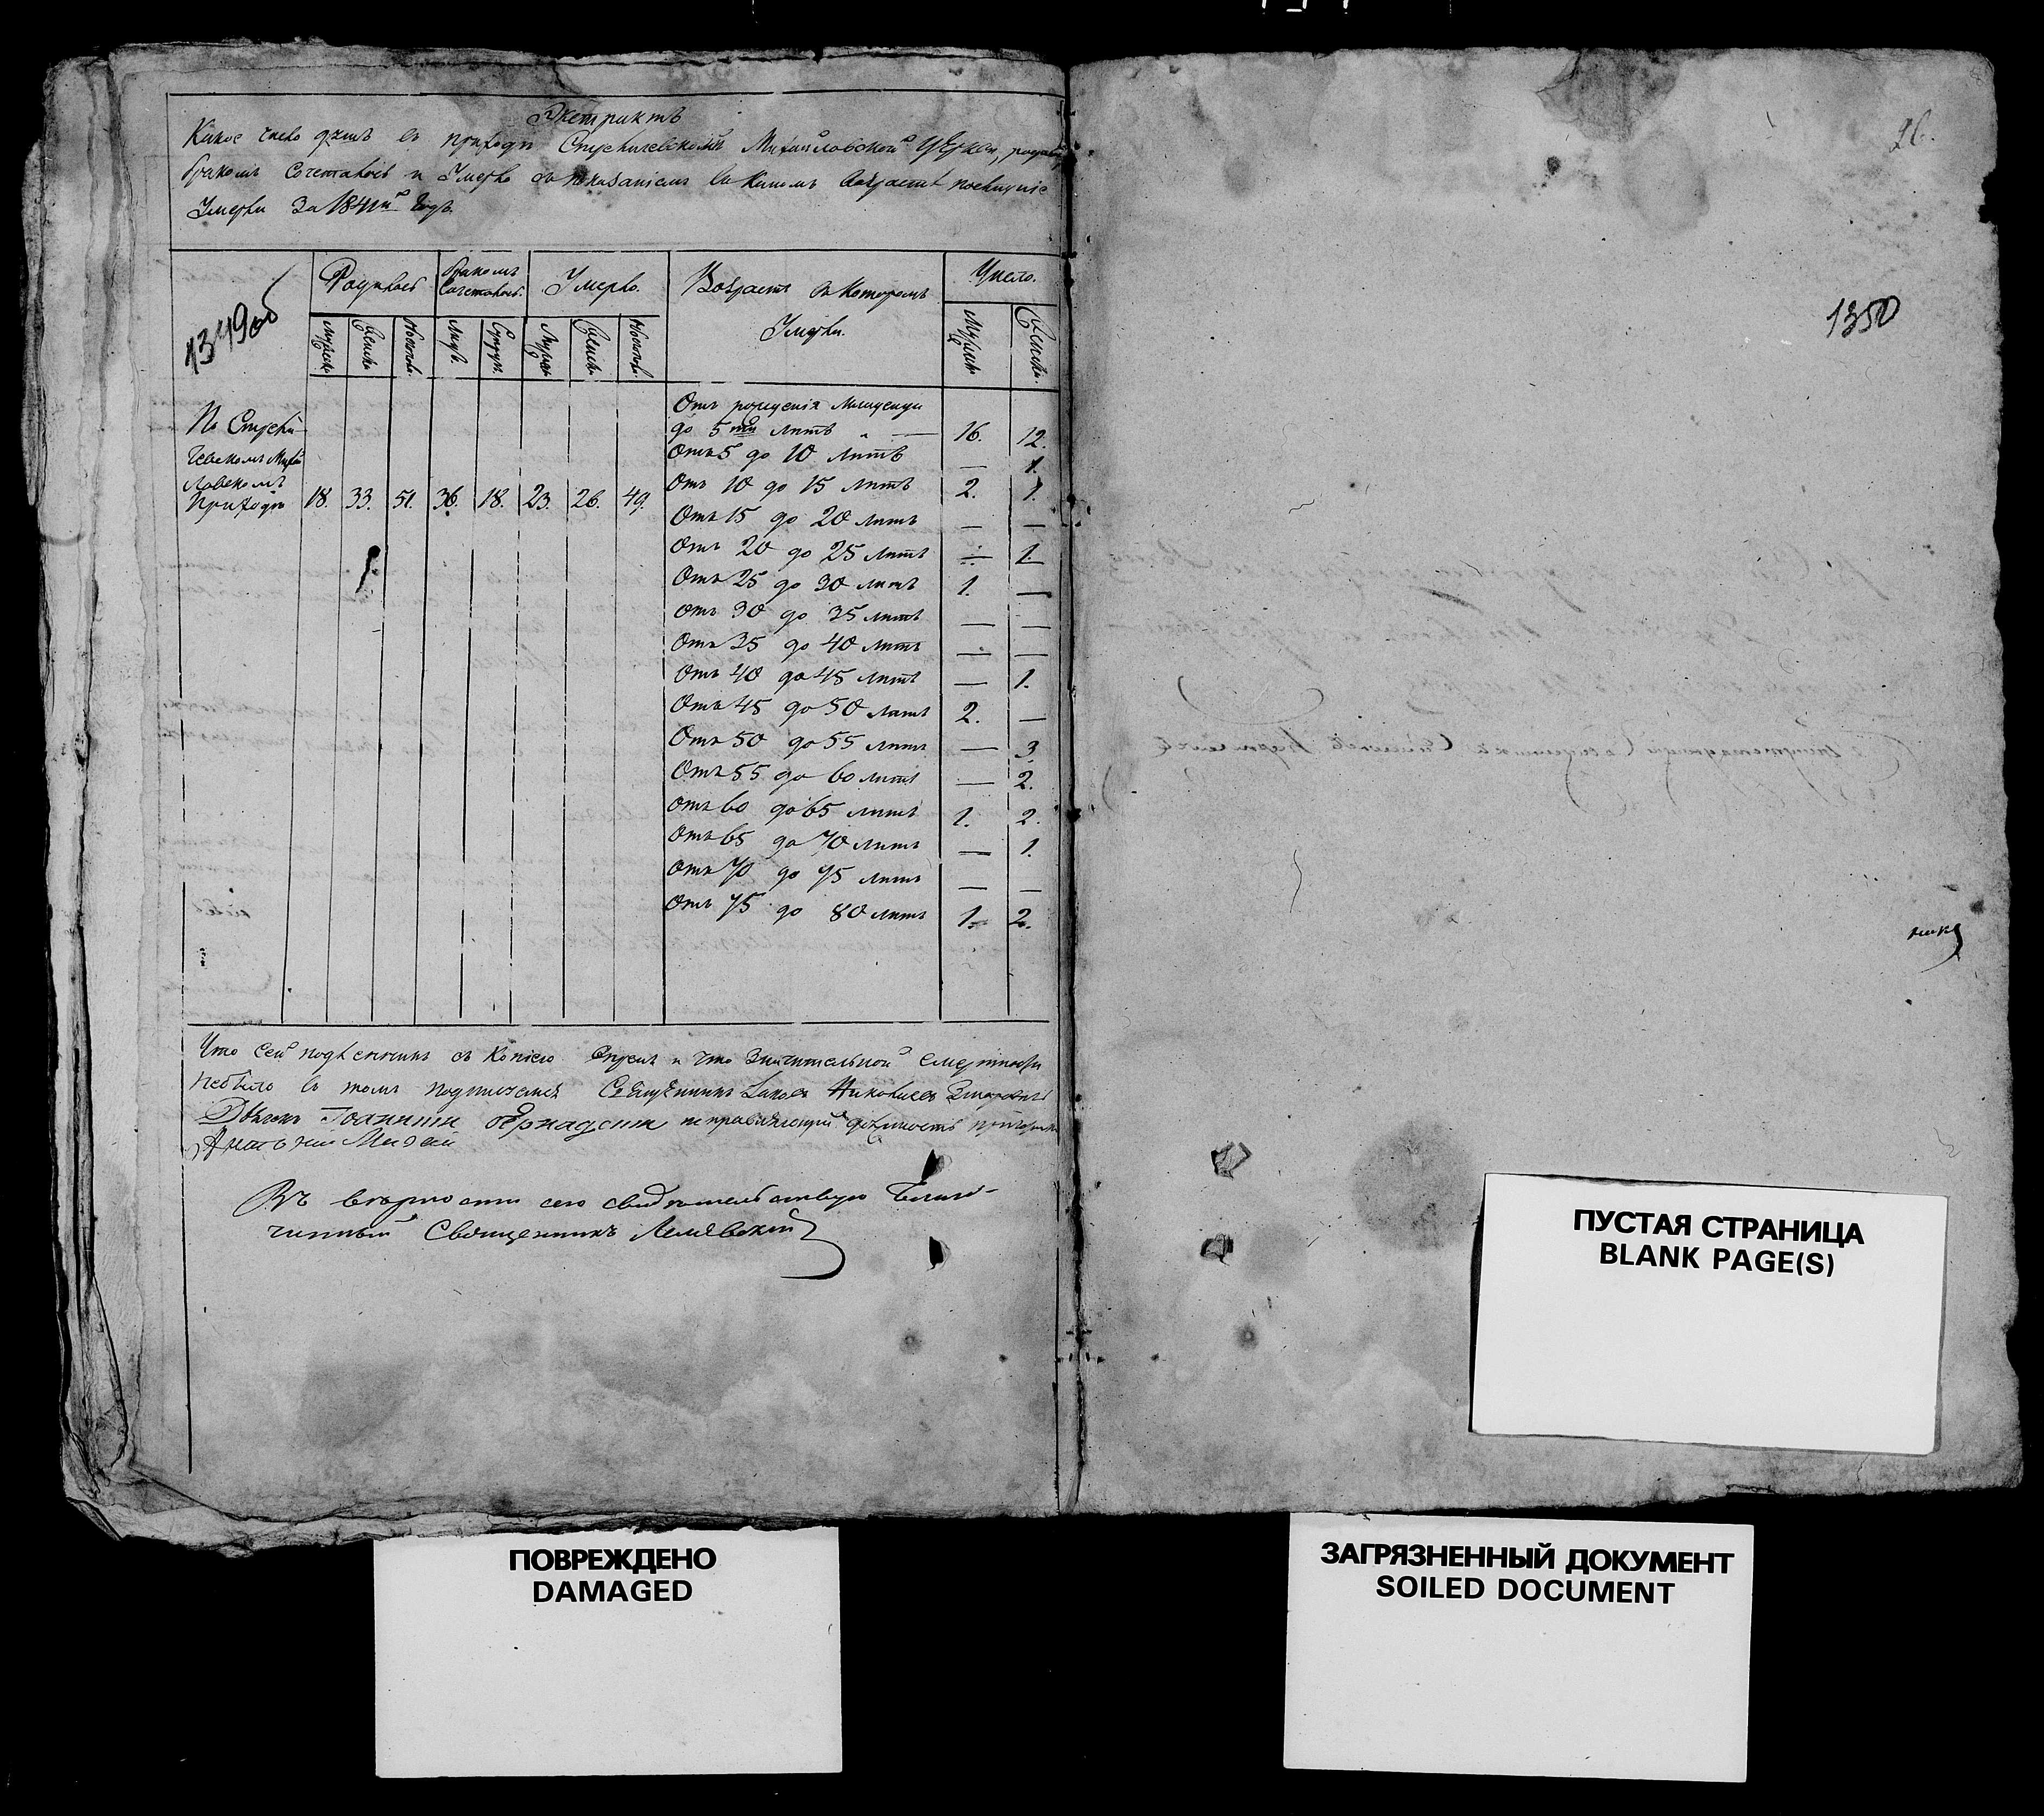 Экстрактъ
Какое число душъ въ приходѣ Михайловской церкви,
бракомъ сочеталось и умерло съ показаніемъ въ какомъ возрастѣ
умерли за 1841й годъ.
1349 об
Родилось
бракомъ сочеталось
Умерло.
Возрастъ въ которомъ Умерли.
Число.
Мужеск. Женск. Обоего. Лицъ. Супруж. Мужес. Женск. Обоего. Мужеск. Женск.
По
Приходѣ 18. 33. 51. 36. 18. 23. 26. 49.
Отъ рожденія младенцы
до 5ти лѣтъ — 16. 12.
Отъ 5 до 10 лѣтъ — 1.
Отъ 10 до 15 лѣтъ 2. 1.
Отъ 15 до 20 лѣтъ — —
Отъ 20 до 25 лѣтъ — 1.
Отъ 25 до 30 лѣтъ 1. —
Отъ 30 до 35 лѣтъ — —
Отъ 35 до 40 лѣтъ — —
Отъ 40 до 45 лѣтъ — 1.
Отъ 45 до 50 лѣтъ 2. —
Отъ 50 до 55 лѣтъ — 3.
Отъ 55 до 60 лѣтъ — 2.
Отъ 60 до 65 лѣтъ 1. 2.
Отъ 65 до 70 лѣтъ — 1.
Отъ 70 до 75 лѣтъ — —
Отъ 75 до 80 лѣтъ 1. 2.
Что сей подлинникъ съ копіею и что значительной смертности
небыло въ томъ подписуемся Священникъ
исправляющій должность
Въ верности сего свидетельствую Благо-
чинный Священникъ
26.
1350
ПУСТАЯ СТРАНИЦА
BLANK PAGE(S)
ПОВРЕЖДЕНО
DAMAGED
ЗАГРЯЗНЕННЫЙ ДОКУМЕНТ
SOILED DOCUMENT